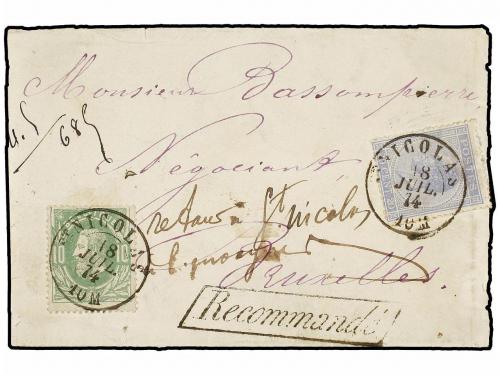 Monsieur Bassompierre
Négociant
retour à St nicolas
Bruxelles
Recommandé
St NICOLAS
18
JUIL.
74
10M
St NICOLAS
18
JUIL.
74
10M
10